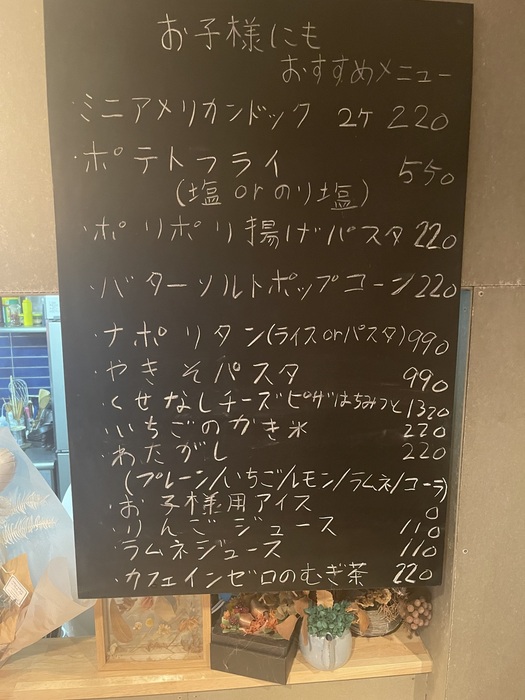 お子様にも
おすすめメニュー
・ミニアメリカンドック 2ケ 220
・ポテトフライ 550
(塩 or のり塩)
・ポリポリ揚げパスタ 220
・バターソルトポップコーン 220
・ナポリタン(ライスorパスタ) 990
・やきそパスタ 990
・くせなしチーズピザはちみつと 1320
・いちごのかき氷 220
・わたがし 220
(プレーン/いちご/レモン/ラムネ/コーラ)
・お子様用アイス 0
・りんごジュース 110
・ラムネジュース 110
・カフェインゼロのむぎ茶 220